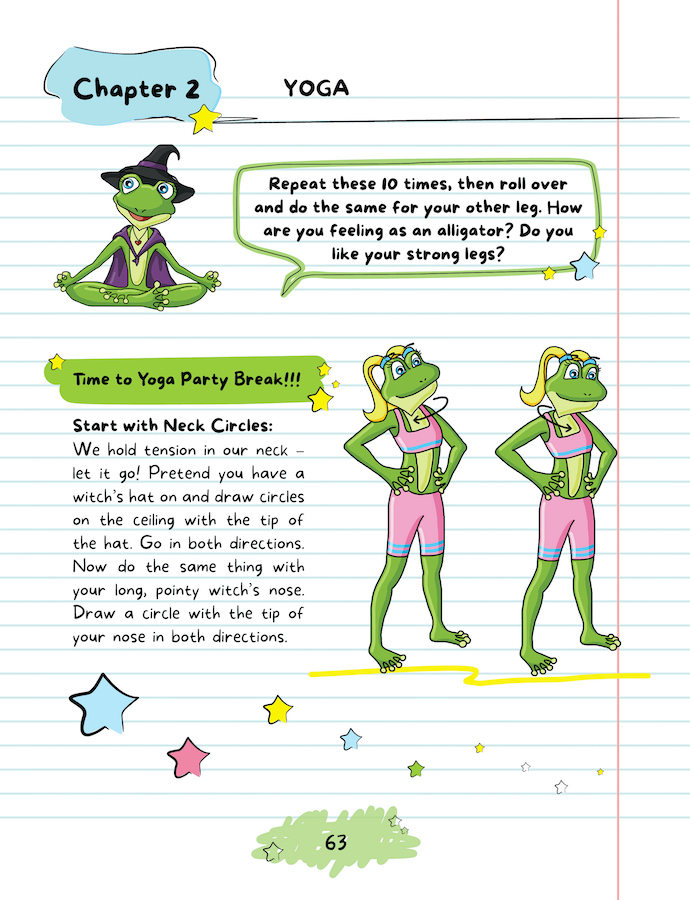 Chapter 2
YOGA
Repeat these 10 times, then roll over
and do the same for your other leg. How
are you feeling as an alligator? Do you
like your strong legs?
Time to Yoga Party Break!!!
Start with Neck Circles:
We hold tension in our neck –
let it go! Pretend you have a
witch's hat on and draw circles
on the ceiling with the tip of
the hat. Go in both directions.
Now do the same thing with
your long, pointy witch's nose.
Draw a circle with the tip of
your nose in both directions.
63